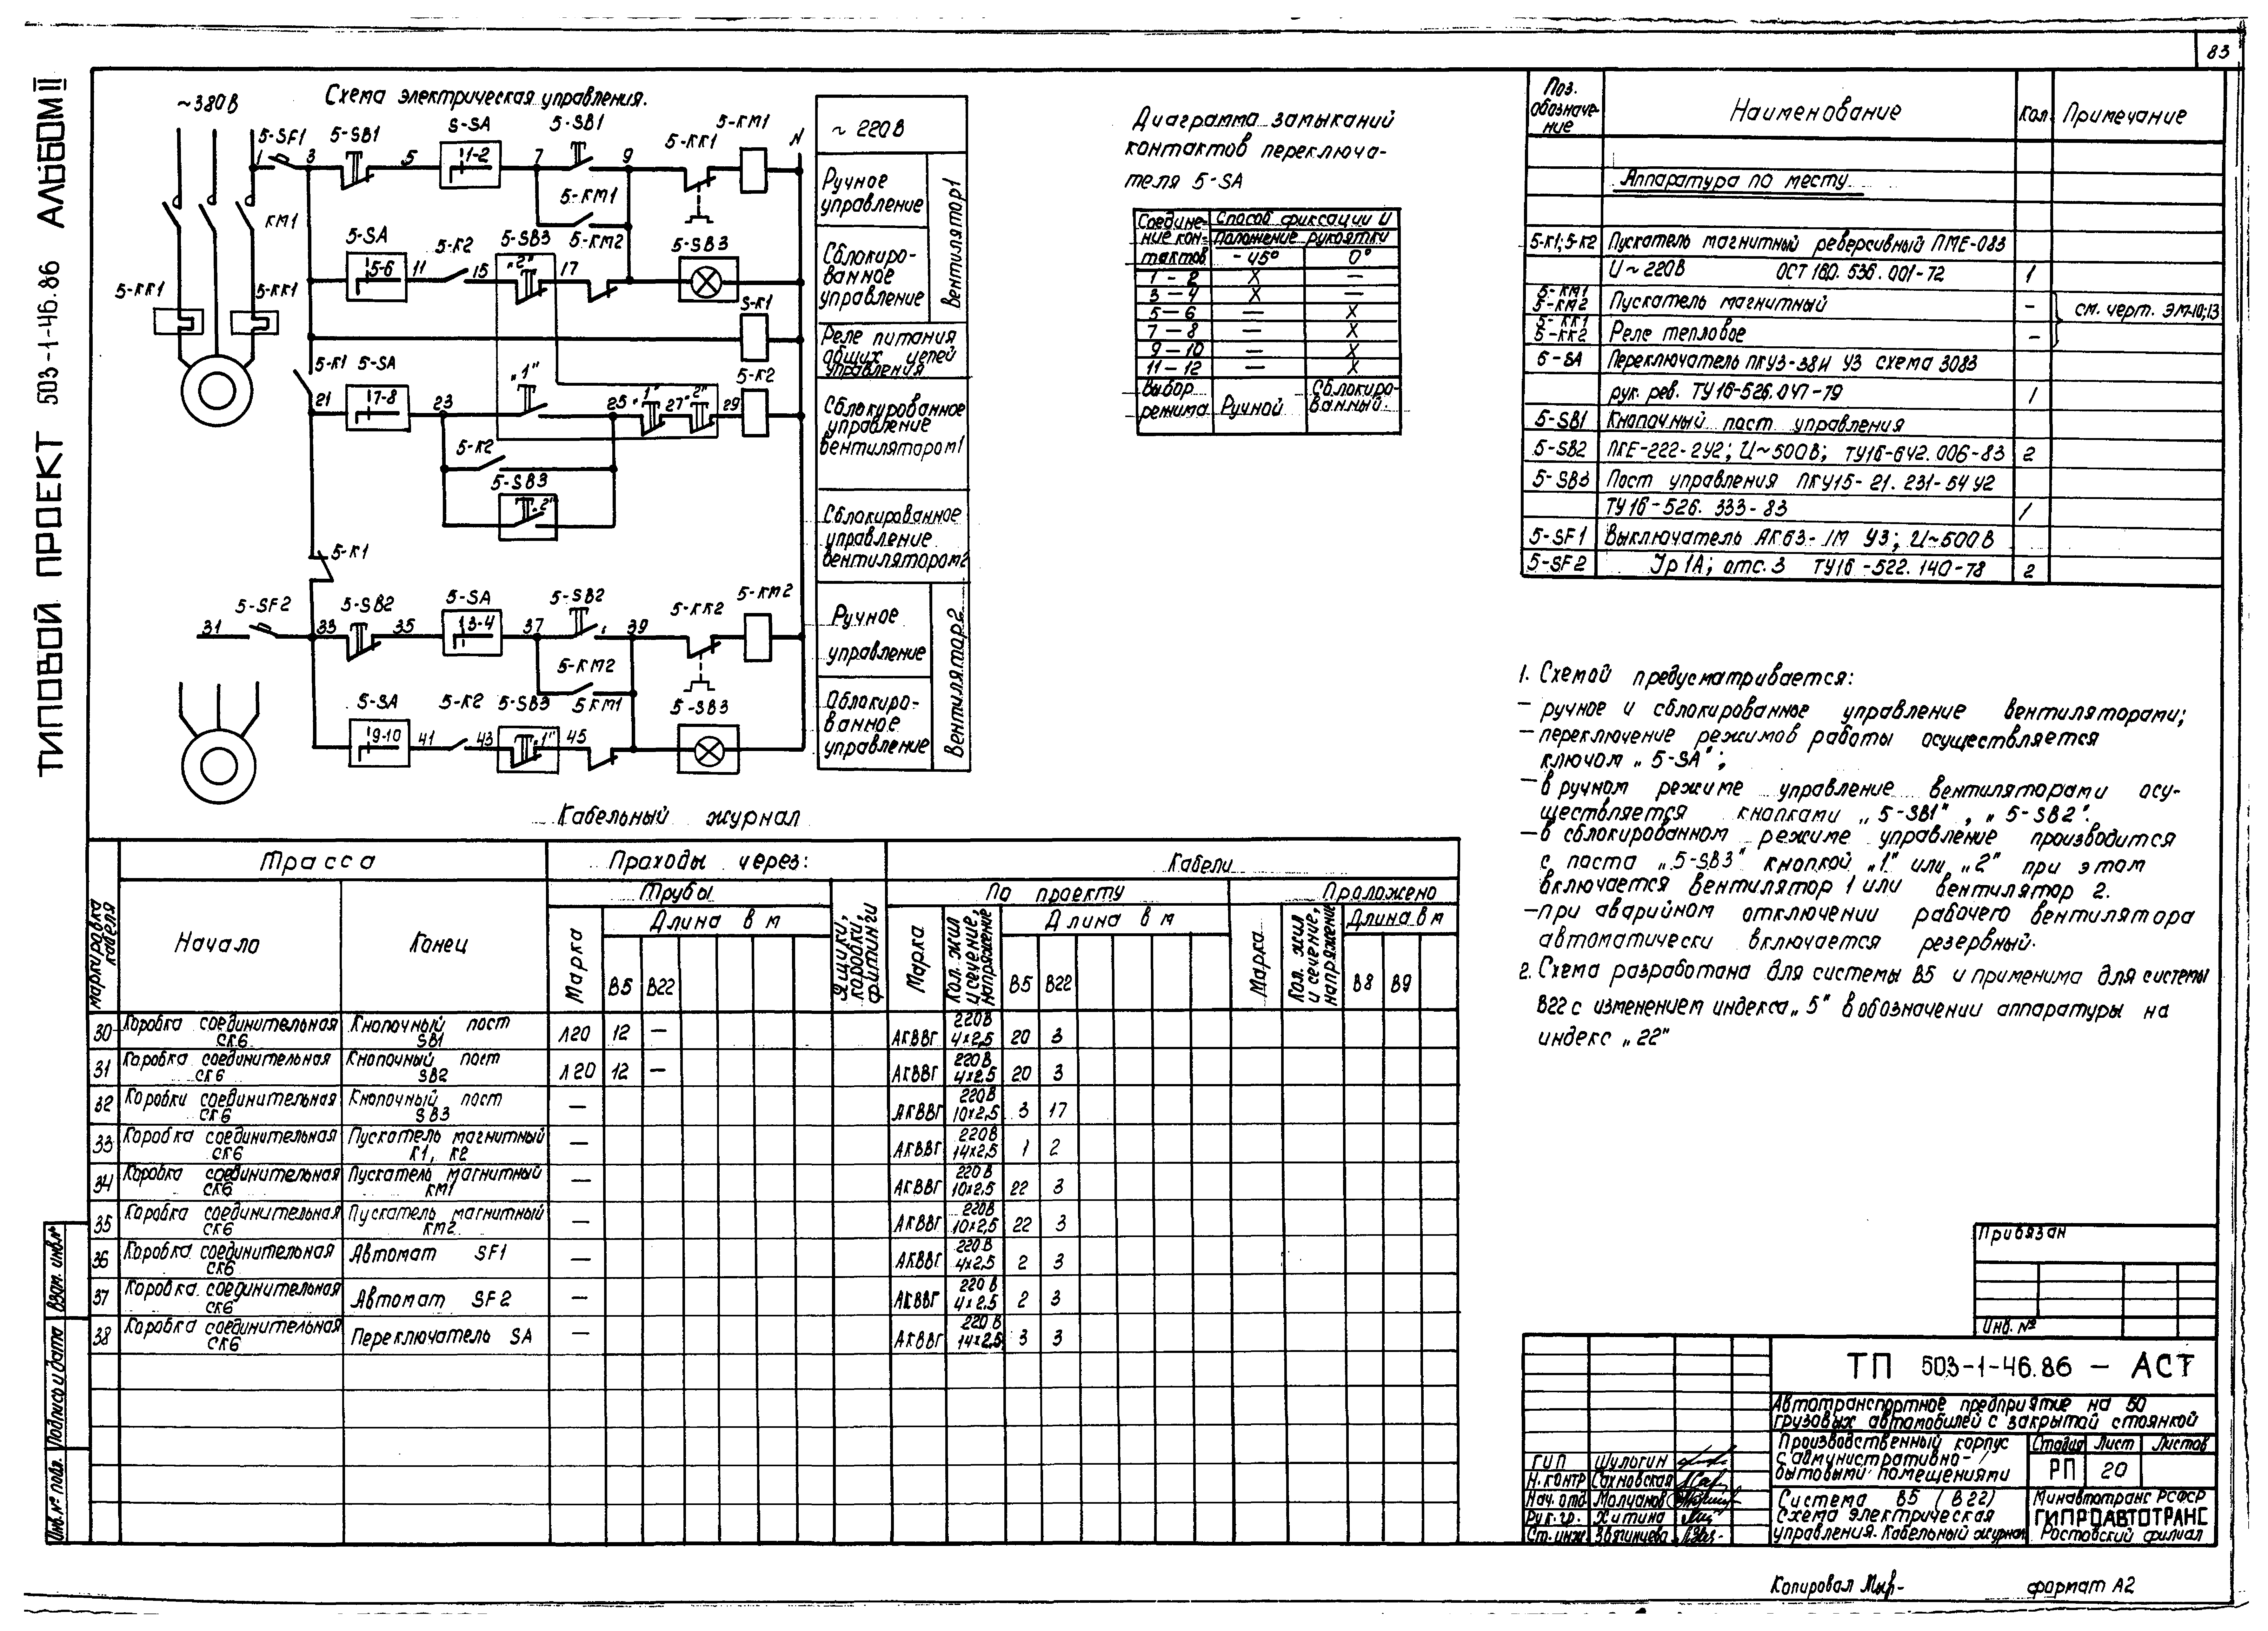 83
ТИПОВОЙ ПРОЕКТ 503-1-46.86 АЛЬБОМ II
Схема электрическая управления.
~380В
5-SF1
5-SB1
S-SA
5-SB1
5-КК1
5-КМ1
N
1
3
5
1-2
7
9
КМ1
5-КМ1
5-SA
5-К2
5-SB3
5-КМ2
5-SB3
5-6
11
15
„2"
17
5-КК1
5-КК1
S-К1
5-К1
5-SA
„1"
„1"
„2"
5-К2
21
7-8
23
25
27
29
5-К2
5-SB3
„2"
5-К1
5-SF2
5-SB2
5-SA
5-SB2
5-КК2
5-КМ2
31
33
35
3-4
37
39
5-КМ2
5-SA
5-К2
5-SB3
5 КМ1
5-SB3
9-10
41
43
„1"
45
~ 220В
Ручное
управление
Сблокиро-
ванное
управление
Вентилятор1
Реле питания
общих цепей
управления
Сблокированное
управление
вентилятором1
Сблокированное
управление
вентилятором2
Ручное
управление
Сблокиро-
ванное
управление
Вентилятор2
Диаграмма замыканий
контактов переключа-
теля 5-SA
Соедине-
ние кон-
тактов
Способ фиксации и
положение рукоятки
-45° 0°
1 - 2 X —
3 - 4 X —
5 - 6 — X
7 - 8 — X
9 - 10 — X
11 - 12 — X
Выбор
режима Ручной Сблокиро-
ванный.
Поз.
обозначе-
ние
Наименование
Кол.
Примечание
Аппаратура по месту
5-К1; 5-К2 Пускатель магнитный реверсивный ПМЕ-083
U~220В ОСТ 160. 536. 001-72 1
5-КМ1
5-КМ2 Пускатель магнитный —
5-КК1
5-КК2 Реле тепловое —
см. черт. ЭМ-10;13
6-SA Переключатель ПКУ3-38И У3 схема 3083
рук. рев. ТУ16-526.047-79 1
5-SB1 Кнопочный пост управления
5-SB2 ПКЕ-222-2У2; U~500В; ТУ16-642.006-83 2
5-SB3 Пост управления ПКУ15-21. 231-54 У2
ТУ16-526. 333-83 1
5-SF1 Выключатель АК63-1М У3; U~500В
5-SF2 Jр 1А; отс. 3 ТУ16-522. 140-78 2
1. Схемой предусматривается:
— ручное и сблокированное управление вентиляторами;
— переключение режимов работы осуществляется
ключом „ 5-SA";
— в ручном режиме управление вентиляторами осу-
ществляется кнопками „ 5-SB1" , „ 5-SB2".
— в сблокированном режиме управление производится
с поста „5-SB3" кнопкой „1" или „2" при этом
включается вентилятор 1 или вентилятор 2.
— при аварийном отключении рабочего вентилятора
автоматически включается резервный.
2. Схема разработана для системы В5 и применима для системы
В22 с изменением индекса „ 5" в обозначении аппаратуры на
индекс „22"
Кабельный журнал
маркировка кабеля
Трасса
Проходы через:
Кабели
Трубы
По проекту
Проложено
Начало
Конец
Марка
Длина в м
В5 В22
Ящики, коробки, фитинги
Марка
Кол. жил и сечение, напряжение
Длина в м
В5 В22
Марка
Кол. жил и сечение, напряжение
Длина в м
В8 В9
30 Коробка соединительная СК6 Кнопочный пост SB1 Л20 12 — АКВВГ 220В 4х2,5 20 3
31 Коробка соединительная СК6 Кнопочный пост SB2 Л20 12 — АКВВГ 220В 4х2,5 20 3
32 Коробки соединительная СК6 Кнопочный пост SB3 — АКВВГ 220В 10х2,5 3 17
33 Коробка соединительная СК6 Пускатель магнитный К1, К2 — АКВВГ 220В 14х2,5 1 2
34 Коробка соединительная СК6 Пускатель магнитный КМ1 — АКВВГ 220В 10х2,5 22 3
35 Коробка соединительная СК6 Пускатель магнитный КМ2 — АКВВГ 220В 10х2,5 22 3
36 Коробка соединительная СК6 Автомат SF1 — АКВВГ 220В 4х2,5 2 3
37 Коробка соединительная СК6 Автомат SF2 — АКВВГ 220В 4х2,5 2 3
38 Коробка соединительная СК6 Переключатель SA — АКВВГ 220В 14х2,5 3 3
Взам. инв.№
Подпись и дата
Инв.№ подл.
Привязан
Инв. №
ТП 503-1-46.86 — АСТ
Автотранспортное предприятие на 50
грузовых автомобилей с закрытой стоянкой
Производственный корпус
с административно-
бытовыми помещениями
Стадия Лист Листов
РП 20
ГИП Шульгин
Н. контр Сахновская
Нач. отд. Молчанов
Рук. гр. Хитина
Ст. инж.
Система В5 (В22)
Схема электрическая
управления. Кабельный журнал
Минавтотранс РСФСР
ГИПРОАВТОТРАНС
Ростовский филиал
Копировал
формат А2